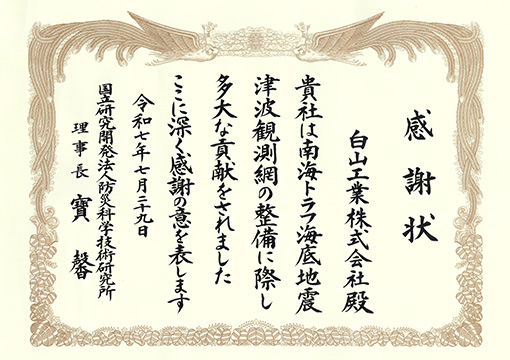 感謝状
白山工業株式会社殿
貴社は南海トラフ海底地震
津波観測網の整備に際し
多大な貢献をされました
ここに深く感謝の意を表します
令和七年七月二十九日
国立研究開発法人防災科学技術研究所
理事長 寶 馨